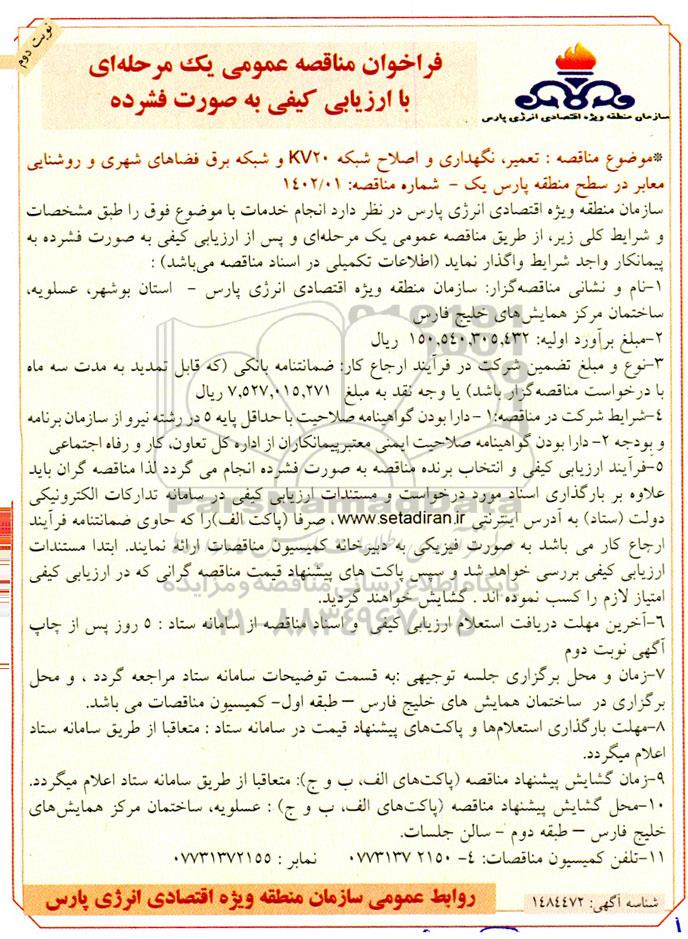 نوبت دوم
فراخوان مناقصه عمومی یک مرحله‌ای
با ارزیابی کیفی به صورت فشرده
سازمان منطقه ویژه اقتصادی انرژی پارس
*موضوع مناقصه : تعمیر، نگهداری و اصلاح شبکه KV۲۰ و شبکه برق فضاهای شهری و روشنایی
معابر در سطح منطقه پارس یک - شماره مناقصه: ۱۴۰۲/۰۱
سازمان منطقه ویژه اقتصادی انرژی پارس در نظر دارد انجام خدمات با موضوع فوق را طبق مشخصات
و شرایط کلی زیر، از طریق مناقصه عمومی یک مرحله‌ای و پس از ارزیابی کیفی به صورت فشرده به
پیمانکار واجد شرایط واگذار نماید (اطلاعات تکمیلی در اسناد مناقصه می‌باشد) :
۱-نام و نشانی مناقصه‌گزار: سازمان منطقه ویژه اقتصادی انرژی پارس - استان بوشهر، عسلویه،
ساختمان مرکز همایش‌های خلیج فارس
۲-مبلغ برآورد اولیه: ۱۵۰,۵۴۰,۳۰۵,۴۳۲ ریال
۳-نوع و مبلغ تضمین شرکت در فرآیند ارجاع کار: ضمانتنامه بانکی (که قابل تمدید به مدت سه ماه
با درخواست مناقصه‌گزار باشد) یا وجه نقد به مبلغ ۷,۵۲۷,۰۱۵,۲۷۱ ریال
۴-شرایط شرکت در مناقصه:۱- دارا بودن گواهینامه صلاحیت با حداقل پایه ۵ در رشته نیرو از سازمان برنامه
و بودجه ۲- دارا بودن گواهینامه صلاحیت ایمنی معتبرپیمانکاران از اداره کل تعاون، کار و رفاه اجتماعی
۵-فرآیند ارزیابی کیفی و انتخاب برنده مناقصه به صورت فشرده انجام می گردد لذا مناقصه گران باید
علاوه بر بارگذاری اسناد مورد درخواست و مستندات ارزیابی کیفی در سامانه تدارکات الکترونیکی
دولت (ستاد) به آدرس اینترنتی www.setadiran.ir ، صرفا (پاکت الف)را که حاوی ضمانتنامه فرآیند
ارجاع کار می باشد به صورت فیزیکی به دبیرخانه کمیسیون مناقصات ارائه نمایند. ابتدا مستندات
ارزیابی کیفی بررسی خواهد شد و سپس پاکت های پیشنهاد قیمت مناقصه گرانی که در ارزیابی کیفی
امتیاز لازم را کسب نموده اند . گشایش خواهند گردید.
۶-آخرین مهلت دریافت استعلام ارزیابی کیفی و اسناد مناقصه از سامانه ستاد : ۵ روز پس از چاپ
آگهی نوبت دوم
۷-زمان و محل برگزاری جلسه توجیهی :به قسمت توضیحات سامانه ستاد مراجعه گردد ، و محل
برگزاری در ساختمان همایش های خلیج فارس – طبقه اول- کمیسیون مناقصات می باشد.
۸-مهلت بارگذاری استعلام‌ها و پاکت‌های پیشنهاد قیمت در سامانه ستاد : متعاقبا از طریق سامانه ستاد
اعلام میگردد.
۹-زمان گشایش پیشنهاد مناقصه (پاکت‌های الف، ب و ج): متعاقبا از طریق سامانه ستاد اعلام میگردد.
۱۰-محل گشایش پیشنهاد مناقصه (پاکت‌های الف، ب و ج) : عسلویه، ساختمان مرکز همایش‌های
خلیج فارس – طبقه دوم - سالن جلسات.
۱۱-تلفن کمیسیون مناقصات: ۴- ۲۱۵۰ ۰۷۷۳۱۳۷ نمابر : ۰۷۷۳۱۳۷۲۱۵۵
شناسه آگهی: ۱۴۸۴۴۷۲
روابط عمومی سازمان منطقه ویژه اقتصادی انرژی پارس
ParsNamadData
پایگاه اطلاع رسانی مناقصه و مزایده
۰۲۱-۸۸۳۴۹۶۷۰-۵